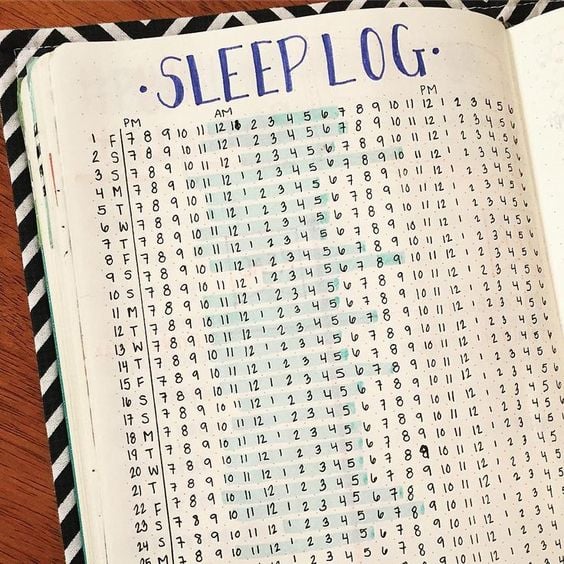 ·SLEEP LOG·
PM AM PM
1 F 7 8 9 10 11 12 1 2 3 4 5 6 7 8 9 10 11 12 1 2 3 4 5 6
2 S 7 8 9 10 11 12 1 2 3 4 5 6 7 8 9 10 11 12 1 2 3 4 5 6
3 S 7 8 9 10 11 12 1 2 3 4 5 6 7 8 9 10 11 12 1 2 3 4 5 6
4 M 7 8 9 10 11 12 1 2 3 4 5 6 7 8 9 10 11 12 1 2 3 4 5 6
5 T 7 8 9 10 11 12 1 2 3 4 5 6 7 8 9 10 11 12 1 2 3 4 5 6
6 W 7 8 9 10 11 12 1 2 3 4 5 6 7 8 9 10 11 12 1 2 3 4 5 6
7 T 7 8 9 10 11 12 1 2 3 4 5 6 7 8 9 10 11 12 1 2 3 4 5 6
8 F 7 8 9 10 11 12 1 2 3 4 5 6 7 8 9 10 11 12 1 2 3 4 5 6
9 S 7 8 9 10 11 12 1 2 3 4 5 6 7 8 9 10 11 12 1 2 3 4 5 6
10 S 7 8 9 10 11 12 1 2 3 4 5 6 7 8 9 10 11 12 1 2 3 4 5 6
11 M 7 8 9 10 11 12 1 2 3 4 5 6 7 8 9 10 11 12 1 2 3 4 5 6
12 T 7 8 9 10 11 12 1 2 3 4 5 6 7 8 9 10 11 12 1 2 3 4 5 6
13 W 7 8 9 10 11 12 1 2 3 4 5 6 7 8 9 10 11 12 1 2 3 4 5 6
14 T 7 8 9 10 11 12 1 2 3 4 5 6 7 8 9 10 11 12 1 2 3 4 5 6
15 F 7 8 9 10 11 12 1 2 3 4 5 6 7 8 9 10 11 12 1 2 3 4 5 6
16 S 7 8 9 10 11 12 1 2 3 4 5 6 7 8 9 10 11 12 1 2 3 4 5 6
17 S 7 8 9 10 11 12 1 2 3 4 5 6 7 8 9 10 11 12 1 2 3 4 5 6
18 M 7 8 9 10 11 12 1 2 3 4 5 6 7 8 9 10 11 12 1 2 3 4 5 6
19 T 7 8 9 10 11 12 1 2 3 4 5 6 7 8 9 10 11 12 1 2 3 4 5 6
20 W 7 8 9 10 11 12 1 2 3 4 5 6 7 8 9 10 11 12 1 2 3 4 5 6
21 T 7 8 9 10 11 12 1 2 3 4 5 6 7 8 9 10 11 12 1 2 3 4 5 6
22 F 7 8 9 10 11 12 1 2 3 4 5 6 7 8 9 10 11 12 1 2 3 4 5 6
23 S 7 8 9 10 11 12 1 2 3 4 5 6 7 8 9 10 11 12 1 2 3 4 5
24 S 7 8 9 10 11 12 1 2 3 4 5 6 7 8 9 10 11 12 1 2 3 4 5
25 M 7 8 9 10 11 12